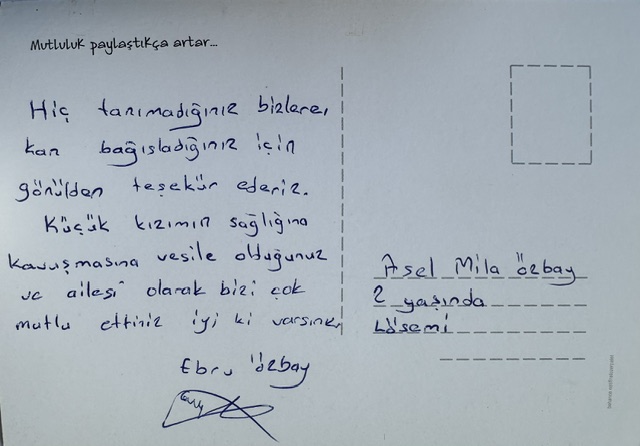 Mutluluk paylaştıkça artar...
Hiç tanımadığınız bizlere,
kan bağışladığınız için
gönülden teşekür ederiz.
Küçük kızımın sağlığına
kavuşmasına vesile olduğunuz
ve ailesi olarak bizi çok
mutlu ettiniz iyi ki varsınız,
Ebru Özbay
Asel Mila Özbay
2 yaşında
Lösemi